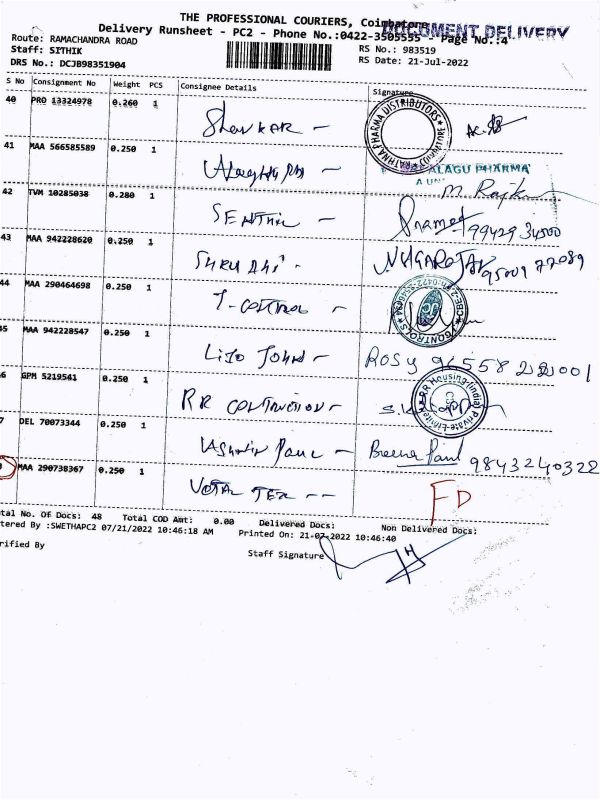 THE PROFESSIONAL COURIERS, Coimbatore
DOCUMENT DELIVERY
Delivery Runsheet - PC2 - Phone No.:0422-3505555 - Page No.:4
Route: RAMACHANDRA ROAD RS No.: 983519
Staff: SITHIK RS Date: 21-Jul-2022
DRS No.: DCJB98351904
S No Consignment No Weight PCS Consignee Details Signature
40 PRO 13324978 0.260 1
Shankar -
RATHNA PHARMA DISTRIBUTORS
41 MAA 566585589 0.250 1
ALAGU PHARMA
42 TVM 10285038 0.280 1
SENTHIL -
99429 34500
43 MAA 942228620 0.250 1
NAGARAJAN 95009 77089
44 MAA 290464698 0.250 1
T-CONTROL -
CONTROLS
45 MAA 942228547 0.250 1
LIJO JOHN - ROSY 96558 22001
6 GPM 5219541 0.250 1
RR
RR Housing (India) Private Limited
7 DEL 70073344 0.250 1
Jasmin Paul - Beena Paul 9843240322
MAA 290738367 0.250 1
VOTAL TEX -- FD
tal No. Of Docs: 48 Total COD Amt: 0.00 Delivered Docs: Non Delivered Docs:
tered By :SWETHAPC2 07/21/2022 10:46:18 AM Printed On: 21-07-2022 10:46:40
rified By Staff Signature